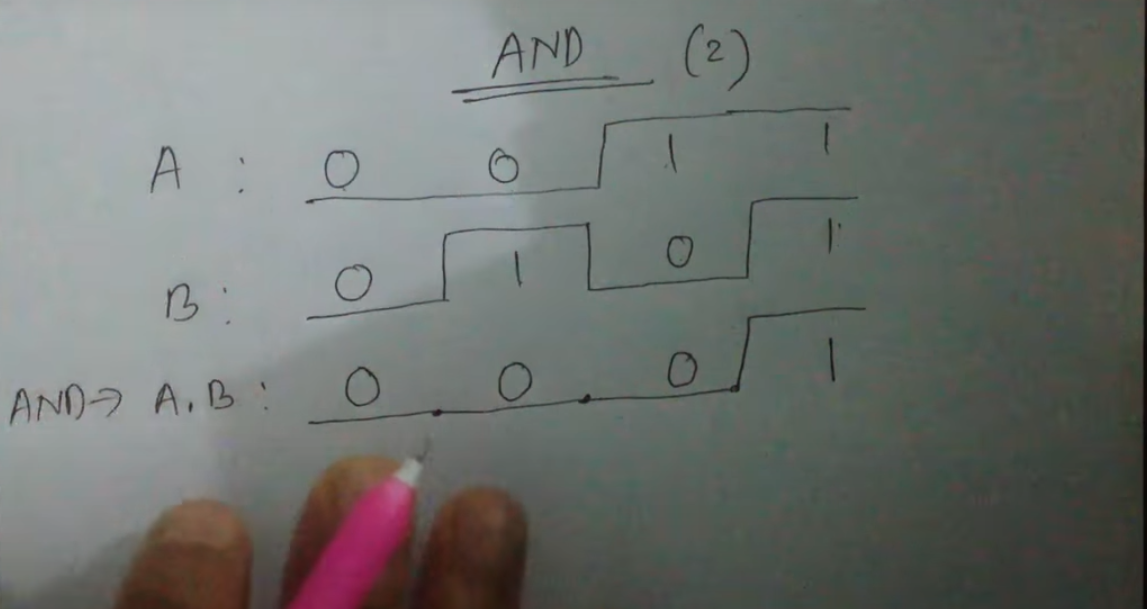 AND (2)
A : 0 0 1 1
B : 0 1 0 1
AND→ A.B : 0 0 0 1